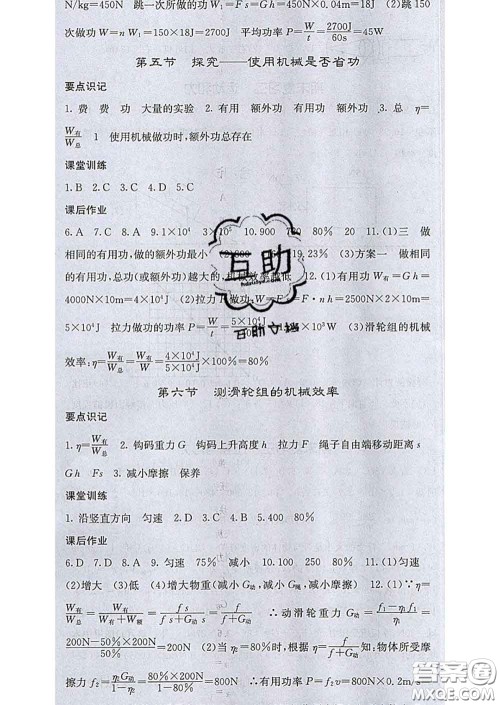 N/kg=450N 跳一次所做的功 W₁=Fs=Gh=450N×0.04m=18J (2)跳150
次做功 W=nW₁=150×18J=2700J 平均功率 P=W/t=2700J/60s=45W
第五节 探究——使用机械是否省功
要点识记
1. 费 费 功 大量的实验 2. 有用 额外功 有用功 额外功 3. 总 η=
W有/W总 1 使用机械做功时,额外功总存在
课堂训练
1. B 2. C 3. D 4. D 5. C
课后作业
6. A 7. C 8. A 9. 1×10⁴ 3×10² 10. 900 720 80% 20 11. (1)三 做
相同的有用功,做的额外功最小 19.23% (3)方案一 做相同
的有用功,总功(或额外功)越大的,机械效率越低 12. (1)有用功 W有=Gh=
4000N×10m=4×10⁴J (2)拉力F做功,W总=F·nh=2500N×2×10m=
5×10⁴J 拉力做功的功率 P=W/t=5×10⁴J ×10³W (3)滑轮组的机械
效率: η=W有/W总=4×10⁴J/5×10⁴J×100%=80%
第六节 测滑轮组的机械效率
要点识记
1. η=W有/W总 2. 钩码重力G 钩码上升高度h 拉力F 绳子自由端移动距离s
Gh Fs 3. 减小摩擦 保养
课堂训练
1. 沿竖直方向 匀速 2. D 3. C 4. B 5. 400 80%
课后作业
6. D 7. D 8. A 9. 匀速 75% 减小 10. 100 250 80% 11. (1)匀速
(2)增大 (3)低 (4)增大物重(减小G动,减小G绳,减小摩擦) 12. (1)∵η=
W有/W总=W有/(W有+W额)=fs/(fs+G动s)=f/(f+G动) ∴动滑轮重力 G动=(f₁-η₁f₁)/η₁=
(200N-50%×200N)/50%=200N (2)当 η₂=80%时,根据η=f/(f+G动)知:物体所受摩
擦力 f₂=η₂G动/(1-η₂)=80%×200N/(1-80%)=800N ∴有用功率 P=f₂v=800N×0.2m/s
互助
互助文档
答案圈
MXQE.COM